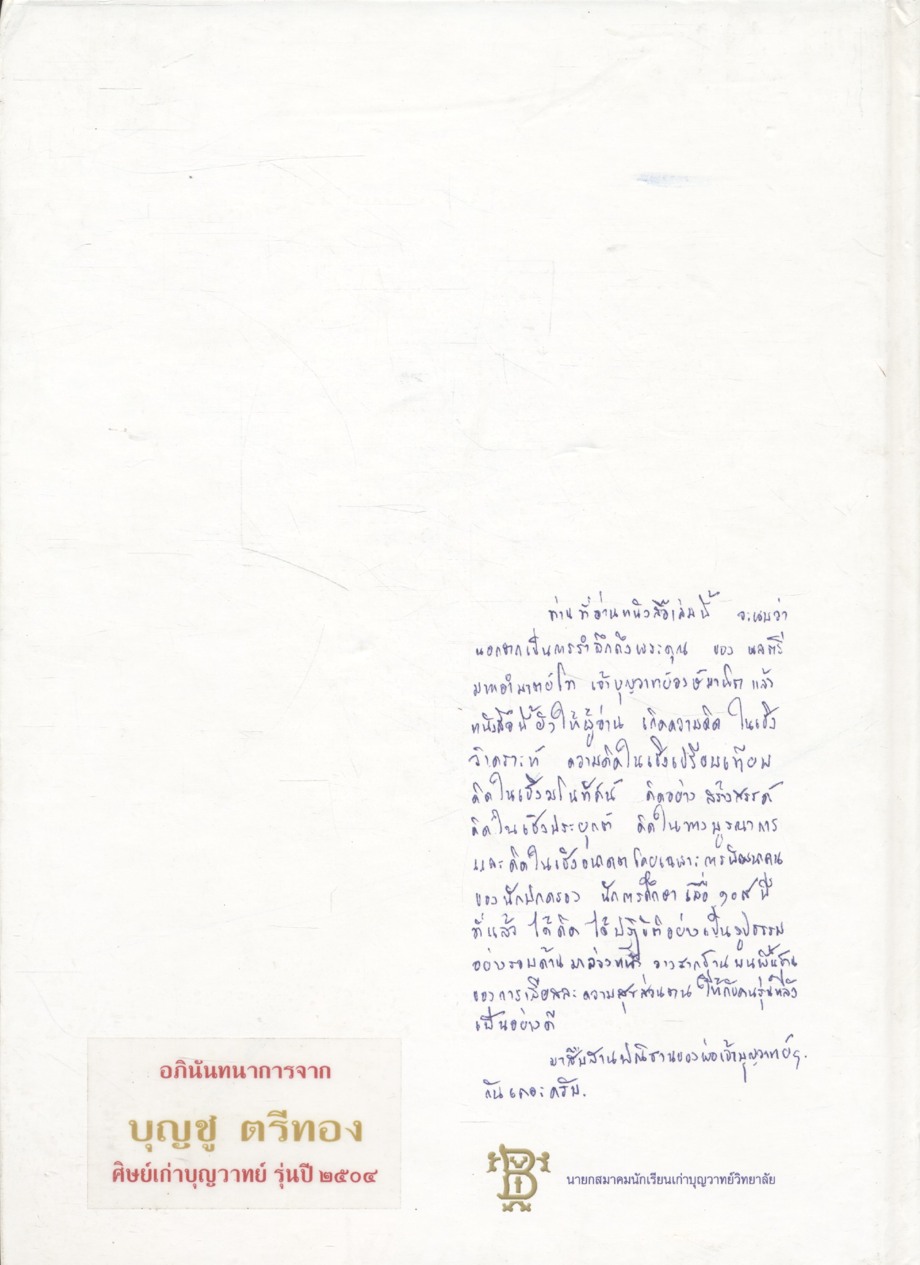 ท่านที่อ่านหนังสือเล่มนี้ จะพบว่า
นอกจากเป็นการรำลึกถึงพระคุณ ของ พลตรี
มหาอำมาตย์โท เจ้าบุญวาทย์วงษ์มานิต แล้ว
หนังสือนี้ยังให้ผู้อ่าน เกิดความคิด ในเชิง
วิเคราะห์ ความคิดในเชิงเปรียบเทียบ
คิดในเชิงมโนทัศน์ คิดอย่าง สร้างสรรค์
คิดในเชิงประยุกต์ คิดในทางบูรณาการ
และคิดในเชิงอนาคต โดยเฉพาะการพัฒนาคน
ของนักปกครอง นักการศึกษา เมื่อ ๑๐๙ ปี
ที่แล้ว ได้คิด ได้ปฏิบัติอย่างเป็นรูปธรรม
อย่างรอบด้าน มาล่วงหน้า วางรากฐาน บนพื้นฐาน
ของการเสียสละ ความสุขส่วนตน ให้กับคนรุ่นหลัง
เป็นอย่างดี
มาสืบสานปณิธานของพ่อเจ้าบุญวาทย์ฯ
กันเถอะครับ.
อภินันทนาการจาก
บุญชู ตรีทอง
ศิษย์เก่าบุญวาทย์ รุ่นปี ๒๕๐๔
นายกสมาคมนักเรียนเก่าบุญวาทย์วิทยาลัย